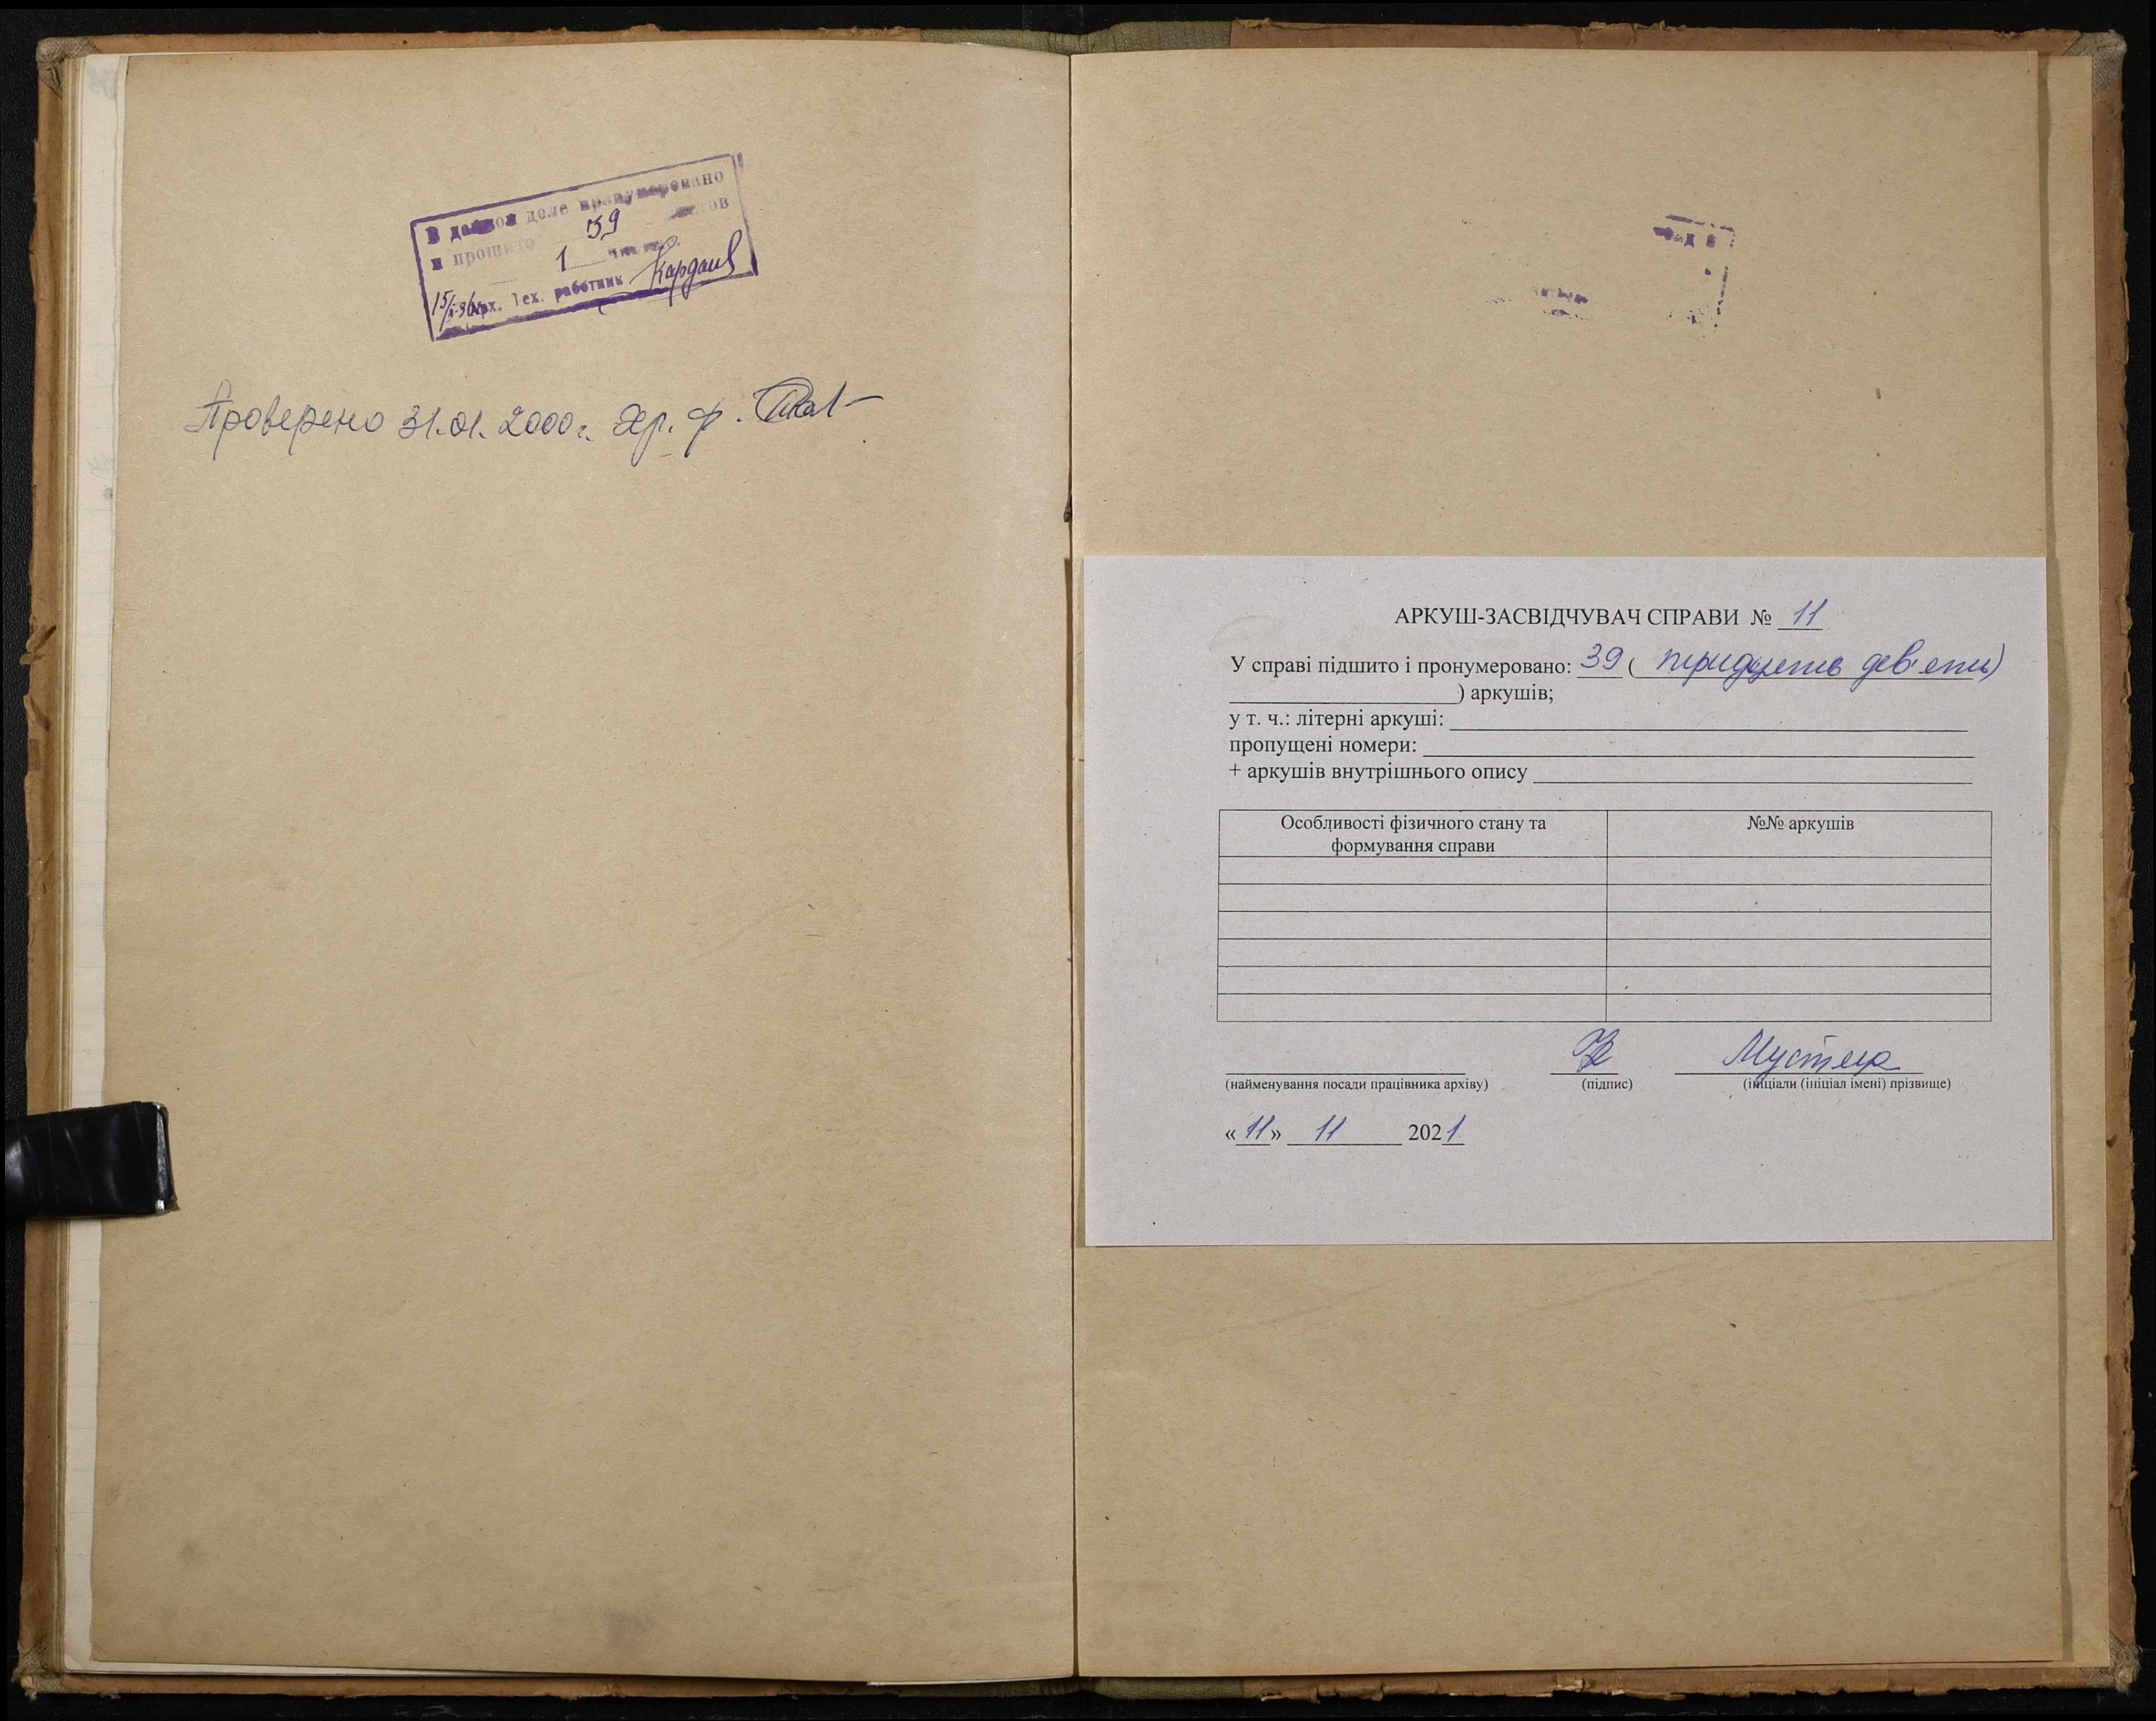 В данном деле пронумеровано
и прошито 39 листов
1
Арх. Тех. работник
Проверено 31.01.2000г. Хр. ф.
АРКУШ-ЗАСВІДЧУВАЧ СПРАВИ № 11
У справі підшито і пронумеровано: 39 ( тридцять дев'ять)
) аркушів;
у т. ч.: літерні аркуші:
пропущені номери:
+ аркушів внутрішнього опису
Особливості фізичного стану та
формування справи
№№ аркушів
(найменування посади працівника архіву)
(підпис)
(ініціали (ініціал імені) прізвище)
«11» 11 2021